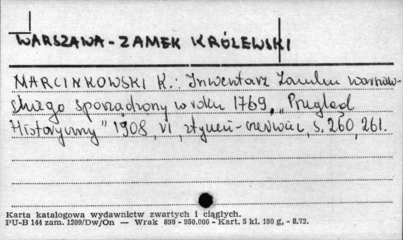 WARSZAWA-ZAMEK KRÓLEWSKI
MARCINKOWSKI K.: Inwentarz Zamku warszaw-
skiego sporządzony w roku 1769, "Przegląd
Historyczny" 1908, VI, styczeń-czerwiec, s. 260, 261.
Karta katalogowa wydawnictw zwartych i ciągłych.
PU-B 144 zam. 1209/Dw/On — Wrak 898 - 950.000 - Kart. 5 kl. 180 g. - 8.72.